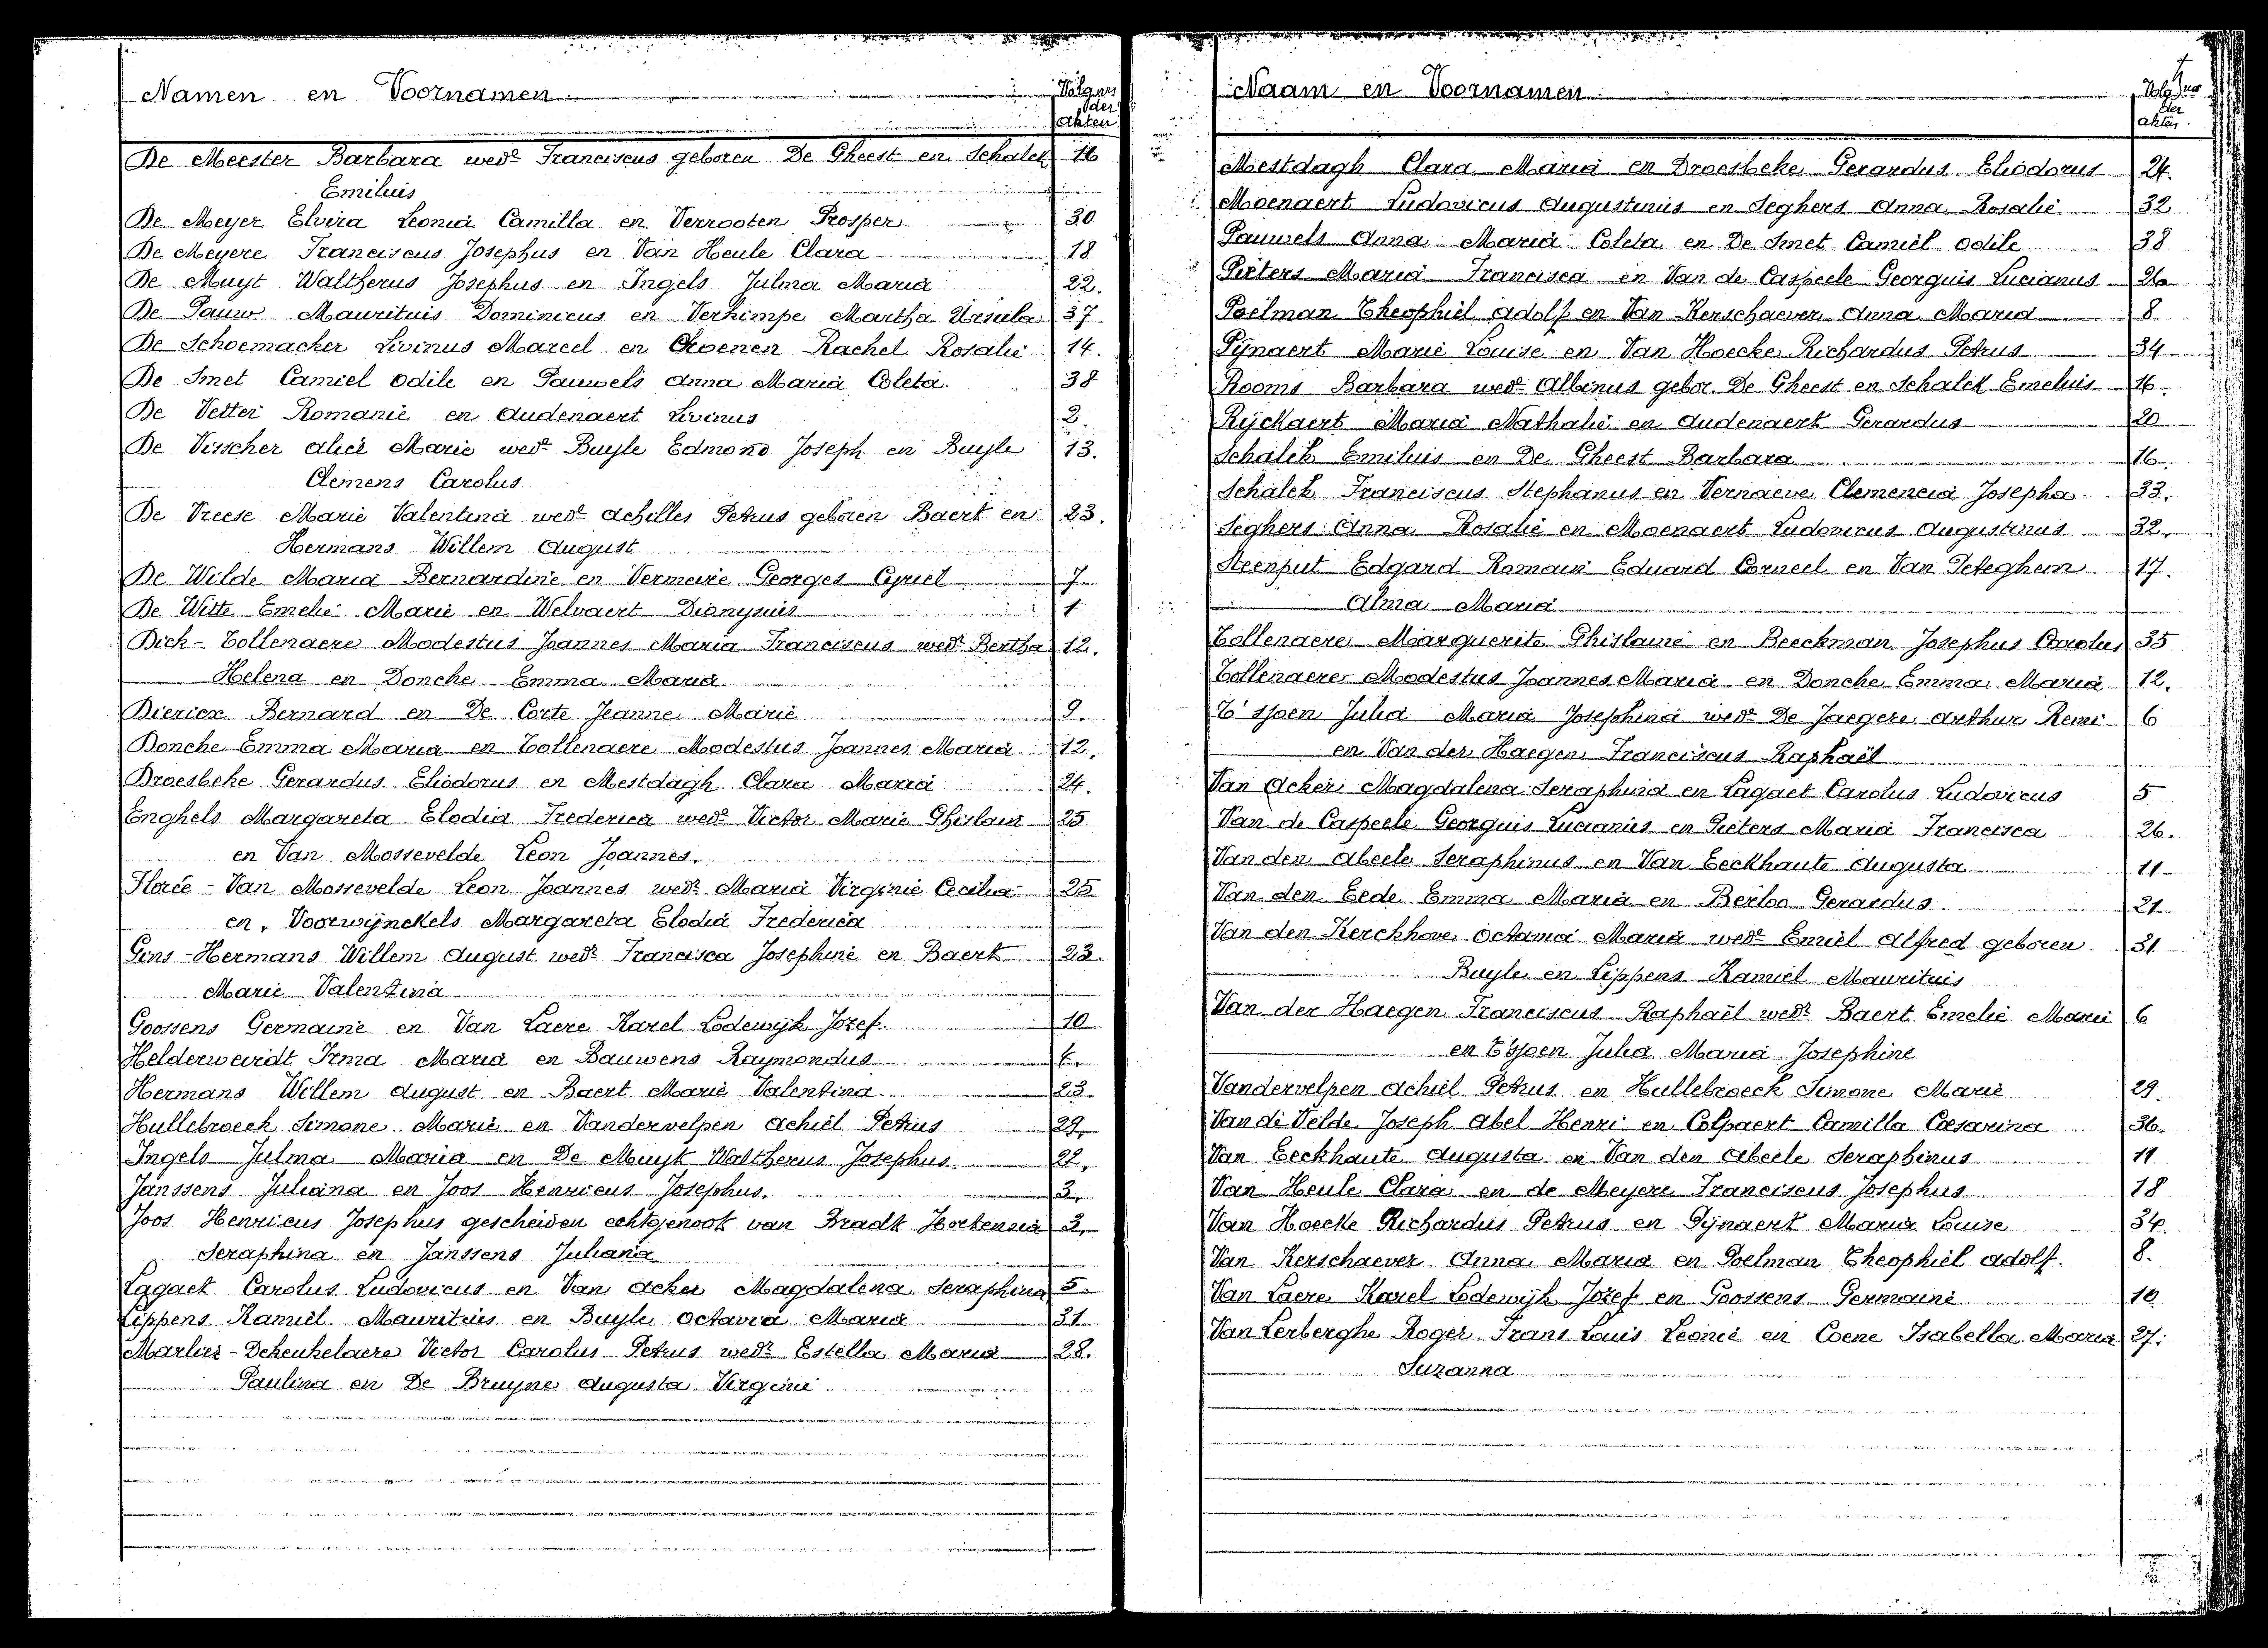 Namen en Voornamen
Volgnrs
der
akten
De Meester Barbara wede Franciscus geboren De Gheest en Schalck 16
Emilius
De Meyer Elvira Leonia Camilla en Verrooten Prosper 30
De Meyere Franciscus Josephus en Van Heule Clara 18
De Muyt Waltherus Josephus en Ingels Julma Maria 22.
De Pauw Mauritius Dominicus en Verhimpe Martha Ursula 37
De Schoemacker Livinus Marcel en Coenen Rachel Rosalie 14.
De Smet Camiel Odile en Pauwels Anna Maria Coleta. 38
De Vetter Romanie en Audenaert Livinus 2.
De Visscher Alice Marie wede Buyle Edmond Joseph en Buyle 13.
Clemens Carolus
De Vreese Marie Valentina wede Achilles Petrus geboren Baert en 23.
Hermans Willem August
De Wilde Maria Bernardine en Vermeire Georges Cyriel 7
De Witte Emelie Marie en Welvaert Dionysius 1
Dick-Tollenaere Modestus Joannes Maria Franciscus wedr Bertha 12.
Helena en Donche Emma Maria
Dierick Bernard en De Corte Jeanne Marie 9.
Donche Emma Maria en Tollenaere Modestus Joannes Maria 12.
Droesbeke Gerardus Eliodorus en Mestdagh Clara Maria 24.
Enghels Margareta Elodia Frederica wede Victor Marie Ghislain 25
en Van Mossevelde Leon Joannes.
Florée - Van Mossevelde Leon Joannes wedr Maria Virginie Cecilia 25
en Voorwijnckels Margareta Elodia Frederica
Gins-Hermans Willem August wedr Francisca Josephine en Baert 23.
Marie Valentina
Goossens Germaine en Van Laere Karel Lodewijk Jozef. 10
Helderweirdt Irma Maria en Bauwens Raymondus
Hermans Willem August en Baert Marie Valentina. 23.
Hullebroeck Simone Marie en Vandervelpen Achiel Petrus 29.
Ingels Julma Maria en De Muyt Waltherus Josephus 22.
Janssens Juliana en Joos Henricus Josephus. 3.
Joos Henricus Josephus gescheiden echtgenoot van Bradt Hortensia 3.
Seraphina en Janssens Juliana
Lagaet Carolus Ludovicus en Van Acker Magdalena Seraphina 5.
Lippens Kamiel Mauritius en Buyle Octavia Maria 31
Marlier-Dekeukelaere Victor Carolus Petrus wedr Estella Maria 28.
Paulina en De Bruyne Augusta Virginie
Naam en Voornamen
Volgnrs
der
akten.
Mestdagh Clara Maria en Droesbeke Gerardus Eliodorus 24.
Moenaert Ludovicus Augustinus en Seghers Anna Rosalie 32
Pauwels Anna Maria Coleta en De Smet Camiel Odile 38
Pieters Maria Francisca en Van de Casteele Georguis Lucianus 26
Poelman Theophiel Adolf en Van Kerschaever Anna Maria 8
Pynaert Marie Louise en Van Hoecke Richardus Petrus 34
Rooms Barbara wede Albinus gebor. De Gheest en Schalck Emelius 16.
Ryckaert Maria Nathalie en Audenaert Gerardus 20
Schalck Emilius en De Gheest Barbara 16
Schalck Franciscus Stephanus en Vernaeve Clemencia Josepha 33.
Seghers Anna Rosalie en Moenaert Ludovicus Augustinus 32.
Steenput Edgard Romain Eduard Corneel en Van Peteghem 17.
Alma Maria
Tollenaere Marguerite Ghislaine en Beeckman Josephus Carolus 35
Tollenaere Modestus Joannes Maria en Donche Emma Maria 12.
T'sjoen Julia Maria Josephina wede De Jaegere Arthur Remi 6
en Van der Haegen Franciscus Raphaël
Van Acker Magdalena Seraphina en Lagaet Carolus Ludovicus 5
Van de Casteele Georguis Lucianus en Pieters Maria Francisca 26.
Van den Abeele Seraphinus en Van Eeckhaute Augusta 11
Van den Eede Emma Maria en Berloo Gerardus 21
Van den Kerckhove Octavia Maria wede Emiel Alfred geboren 31
Buyle en Lippens Kamiel Mauritius
Van der Haegen Franciscus Raphaël wedr Baert Emelie Marie 6
en Tsjoen Julia Maria Josephine
Vandervelpen Achiel Petrus en Hullebroeck Simone Marie 29.
Van de Velde Joseph Abel Henri en Colpaert Camilla Coesarina 36.
Van Eeckhaute Augusta en Van den Abeele Seraphinus 11
Van Heule Clara en de Meyere Franciscus Josephus 18
Van Hoecke Richardus Petrus en Pynaert Maria Louise 34
Van Kerschaever Anna Maria en Poelman Theophiel Adolf. 8.
Van Laere Karel Lodewijk Jozef en Goossens Germaine 10
Van Lerberghe Roger Frans Louis Leonie en Coene Isabella Maria 27.
Suzanna